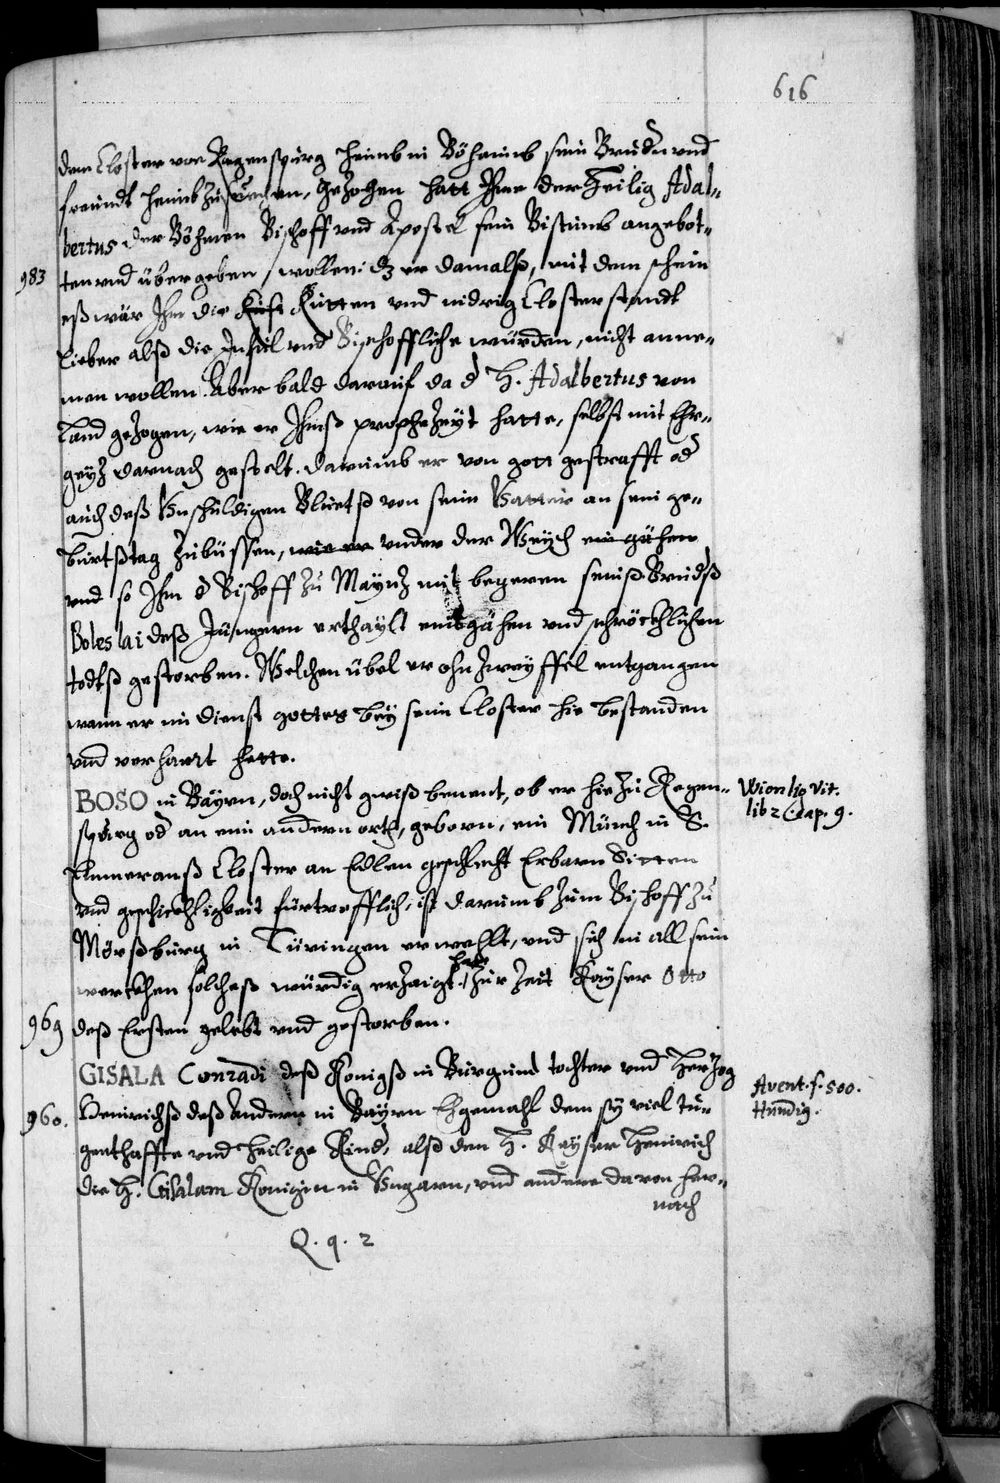 616
dem Closter von Regenspurg heimb in Böheimb sein Bruder und
freundt heimb zu suechen, gezogen hatt Ihme der Heilig Adal-
bertus der Böhmen Bischoff und Apostel sein Bistumb angebot-
983
ten und übergeben wöllen: dz er damalß, mit dem schein
eß wär Ihm die Kutten und nidrig Closterstandt
lieber alß die Infeil und Bischoffliche würden, nicht anne-
men wollen. Aber bald darauf da d H. Adalbertus von
Land gezogen, wie er Ihmß prophezeyt hatte, selbst mit Ehr-
geyz darnach gestelt. darumb er von gott gestrafft od
auch deß Unschuldigen Bluetß von seim Vatter an seim ge-
burtßtag zubüssen, under der Weych
und so Ihm d Bischoff zu Maynz mit begeren seinß Brudß
Boleslai deß Jüngern erthaylt einß gähen und schröckhlichen
todtß gestorben. Welchen übel er ohn zweyffel entgangen
wann er im dienst gottes bey seim Closter hie bestanden
und verharrt hette.
BOSO in Bayrn, doch nicht gwiß benent, ob er hie zu Regen-
Wion lig. vit.
lib 2 Cap. 9.
spurg od an eim andern orth, geborn, ein Münch in S.
Emmeranß Closter an Edlen geschlecht Erbarn Sitten
und geschickhligkeit fürtrefflich, ist darumb zum Bischoff zu
Mörßburg in Türingen erwehlt, und sich in all sein
werckhen solcheß würdig erzaigt. hatt zur Zeit Kayser Otto
969
deß Ersten gelebt und gestorben.
GISALA Conradi deß Königß in Burgund tochter und Herzog
Avent. f. 500.
Hundig.
960.
Heinrichß deß Andern in Bayrn Ehgemahl dem sy viel tu-
genthaffte und heilige Kind, alß den H. Keyser Heinrich
die H. Gisalam Königin in Ungarn, und andere davon her-
nach
Q. q. 2